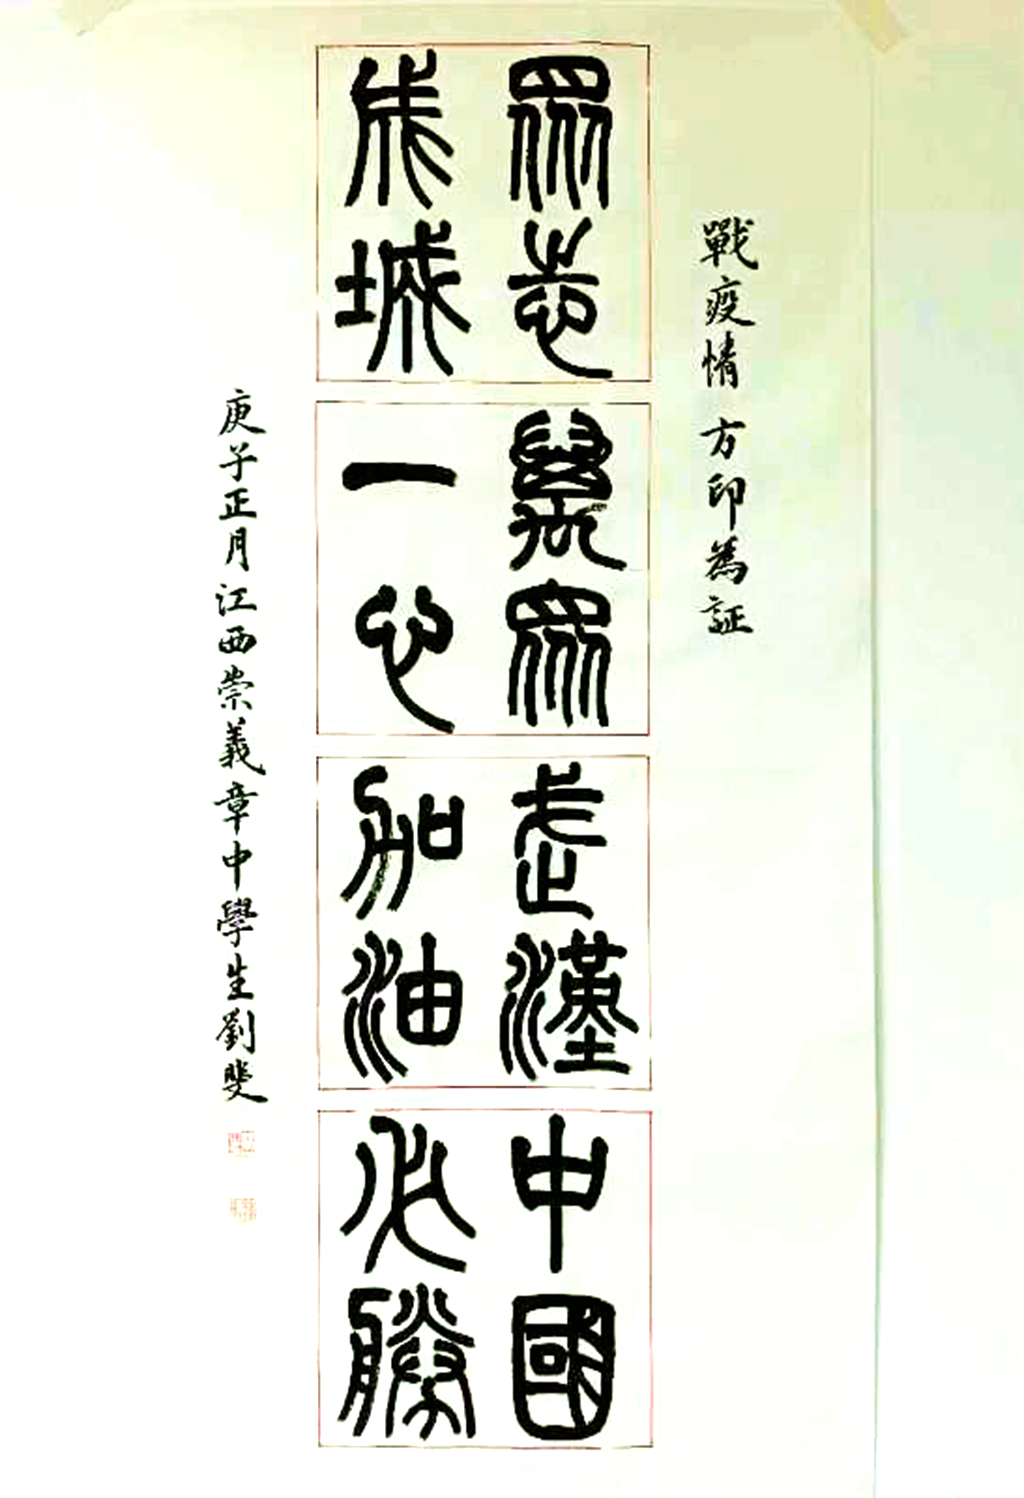 戰疫情 方印為証
眾志
成城
萬眾
一心
武漢
加油
中國
必勝
庚子正月江西崇義章中學生劉斐